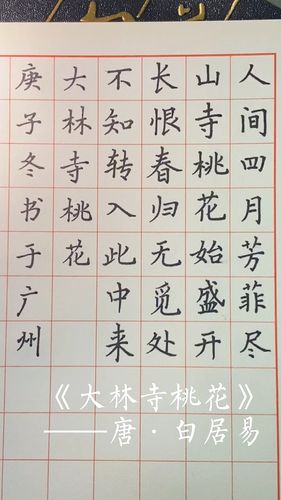 人间四月芳菲尽
山寺桃花始盛开
长恨春归无觅处
不知转入此中来
大林寺桃花
庚子冬书于广州
《大林寺桃花》
——唐·白居易